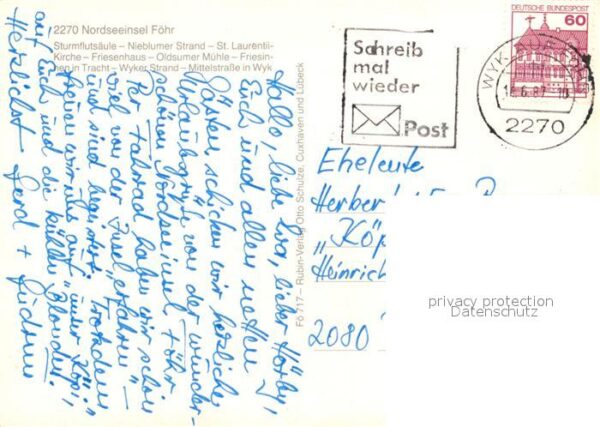 2270 Nordseeinsel Föhr
Sturmflutsäule – Nieblumer Strand – St. Laurentii-
Kirche – Friesenhaus – Oldsumer Mühle – Friesin-
nen in Tracht – Wyker Strand – Mittelstraße in Wyk
Hallo, liebe Eva, lieber Hörby,
Euch und allen netten
Gästen, schicken wir herzliche
Urlaubsgrüße von der wunder-
schönen Nordseeinsel Föhr.
Per Fahrrad haben wir schon
viel von der Insel „erfahren"
und sind begeistert. Trotzdem
freuen wir uns auf „unser Köpi",
auf Euch und die kühlen Blonden!
Herzlichst Gerd +
Fö 717 – Rubin-Verlag Otto Schulze, Cuxhaven und Lübeck
Schreib
mal
wieder
Post
DEUTSCHE BUNDESPOST
60
WYK
6.87
2270
Eheleute
Herber
„Köp
Heinrich
2080
privacy protection
Datenschutz